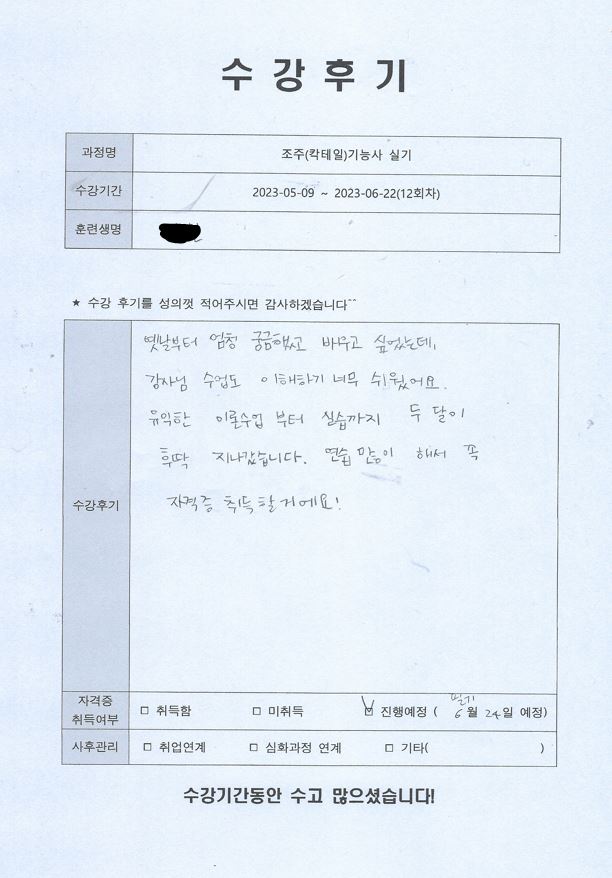 수강후기
과정명 조주(칵테일)기능사 실기
수강기간 2023-05-09 ~ 2023-06-22(12회차)
훈련생명
★ 수강 후기를 성의껏 적어주시면 감사하겠습니다^^
옛날부터 엄청 궁금했었고 배우고 싶었는데,
강사님 수업도 이해하기 너무 쉬웠어요.
유익한 이론수업 부터 실습까지 두 달이
후딱 지나갔습니다. 연습 많이 해서 꼭
수강후기
자격증 취득할거에요!
자격증
취득여부
필기
□ 취득함 □ 미취득 ☑ 진행예정 ( 6월 24일 예정)
사후관리 □ 취업연계 □ 심화과정 연계 □ 기타( )
수강기간동안 수고 많으셨습니다!